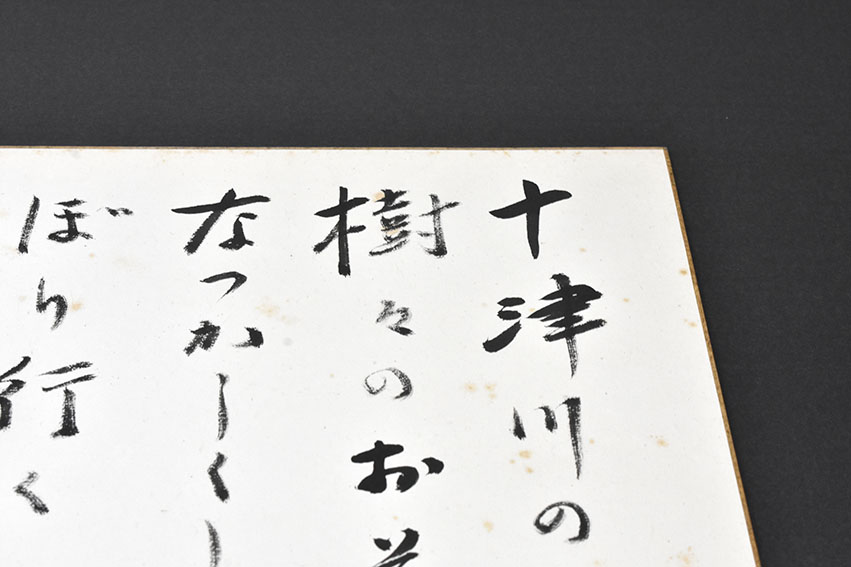 十津川の
樹々のお
なつかしく
ぼり行く